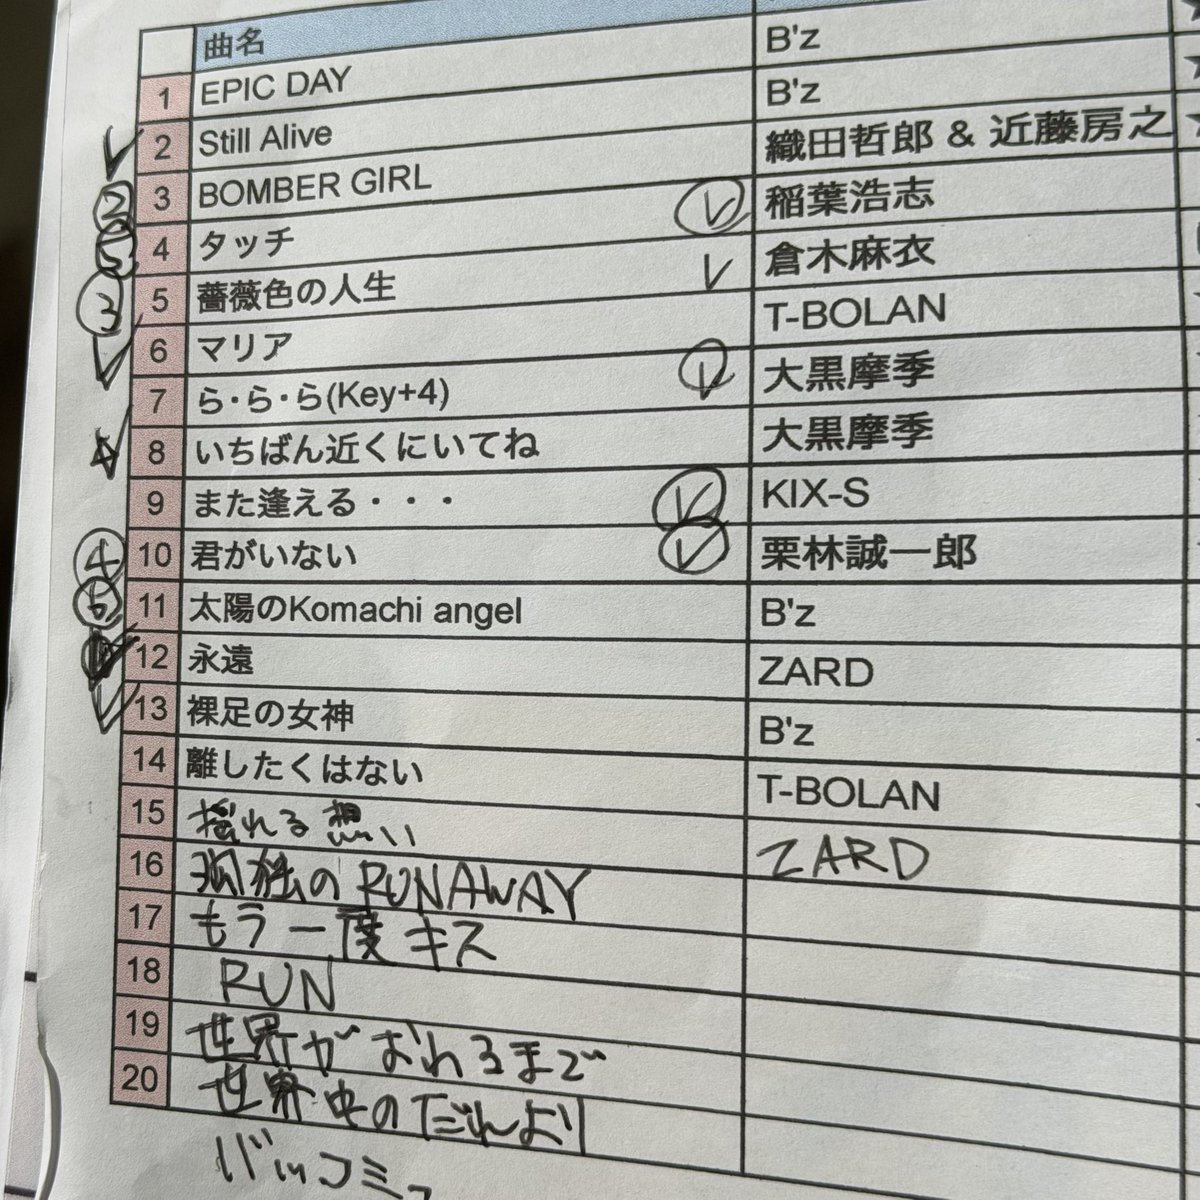 曲名
1 EPIC DAY B'z
2 Still Alive B'z
② 3 BOMBER GIRL 織田哲郎 & 近藤房之
⑤ 4 タッチ 稲葉浩志
③ 5 薔薇色の人生 倉木麻衣
6 マリア T-BOLAN
7 ら・ら・ら(Key+4) 大黒摩季
8 いちばん近くにいてね 大黒摩季
9 また逢える・・・ KIX-S
④ 10 君がいない 栗林誠一郎
11 太陽のKomachi angel B'z
12 永遠 ZARD
13 裸足の女神 B'z
14 離したくはない T-BOLAN
15 揺れる想い ZARD
16 孤独の RUNAWAY
17 もう一度キス
18 RUN
19 世界がおわるまで
20 世界中のだれより
バッコミ